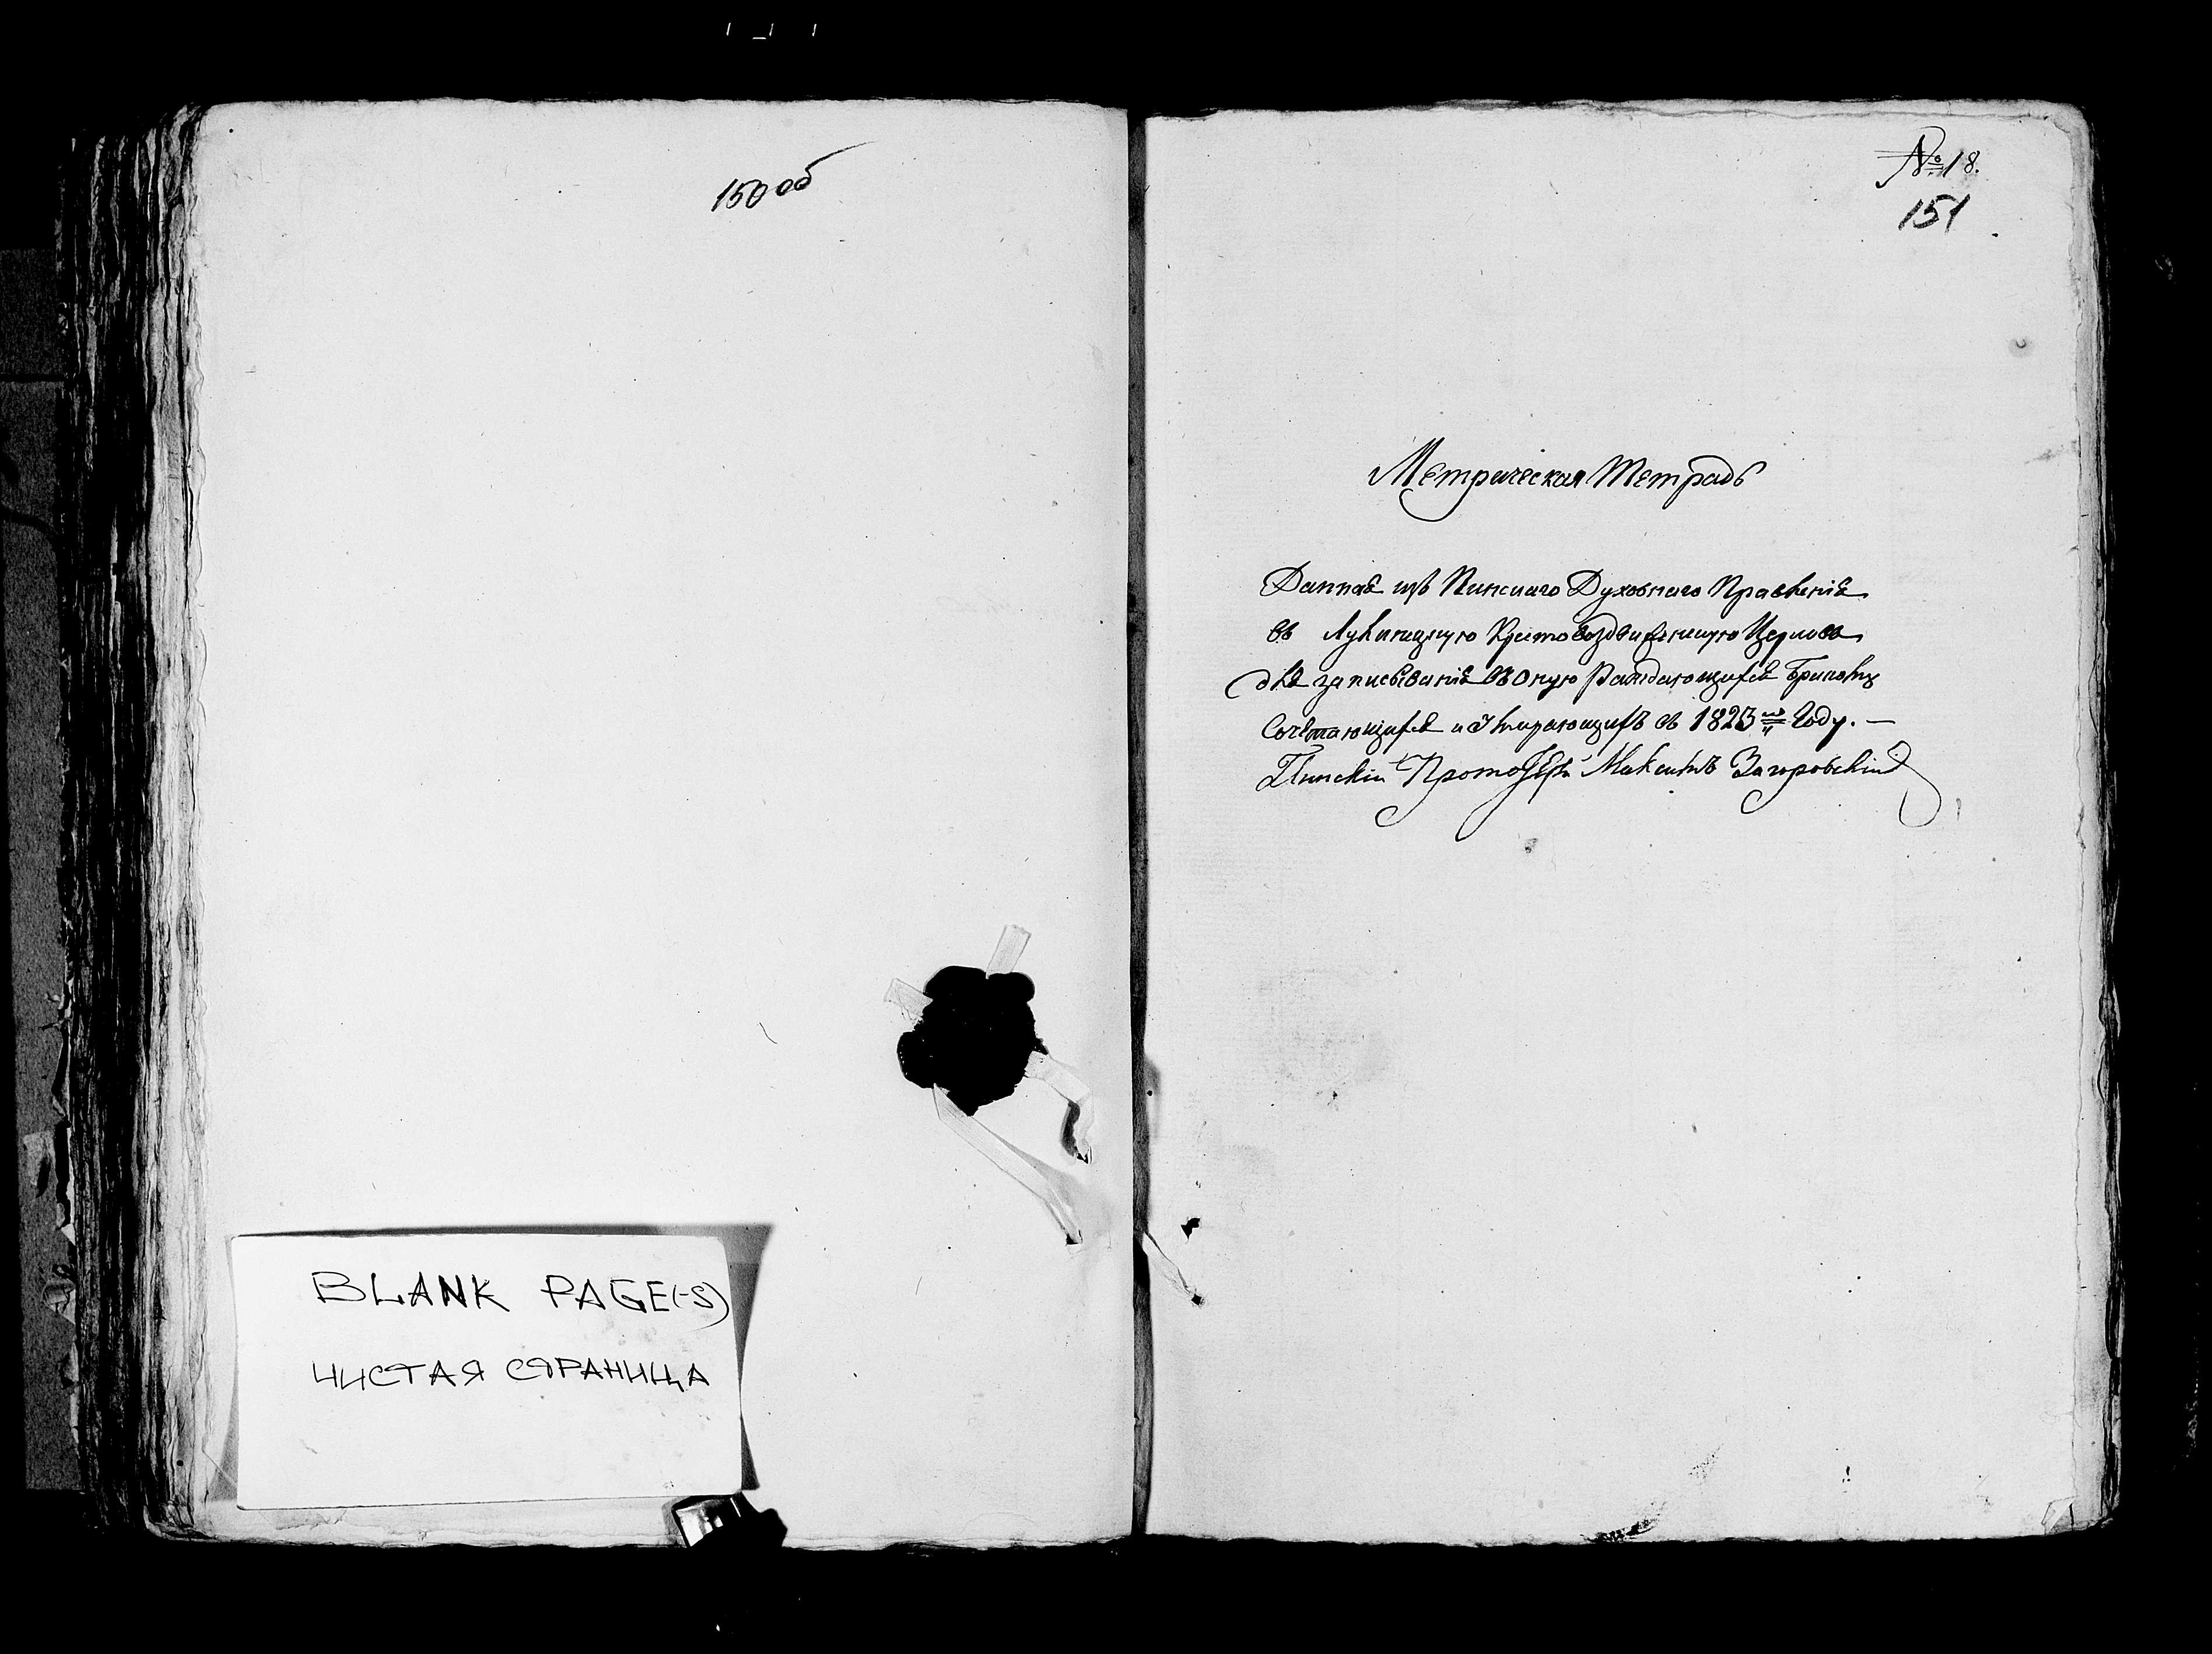 150 об
BLANK PAGE(-S)
ЧИСТАЯ СТРАНИЦА
№ 18.
151
Метрическая Тетрадь
Данная изъ Пинскаго Духовнаго Правленія
въ Лунинецкую Кресто воздвиженскую Церковь
для записыванія въ оную Раждающихся Бракомъ
Сочетающихся и Умирающихъ въ 1823 м Году. —
Пинскій ПротоІерей Максимъ Загоровскій